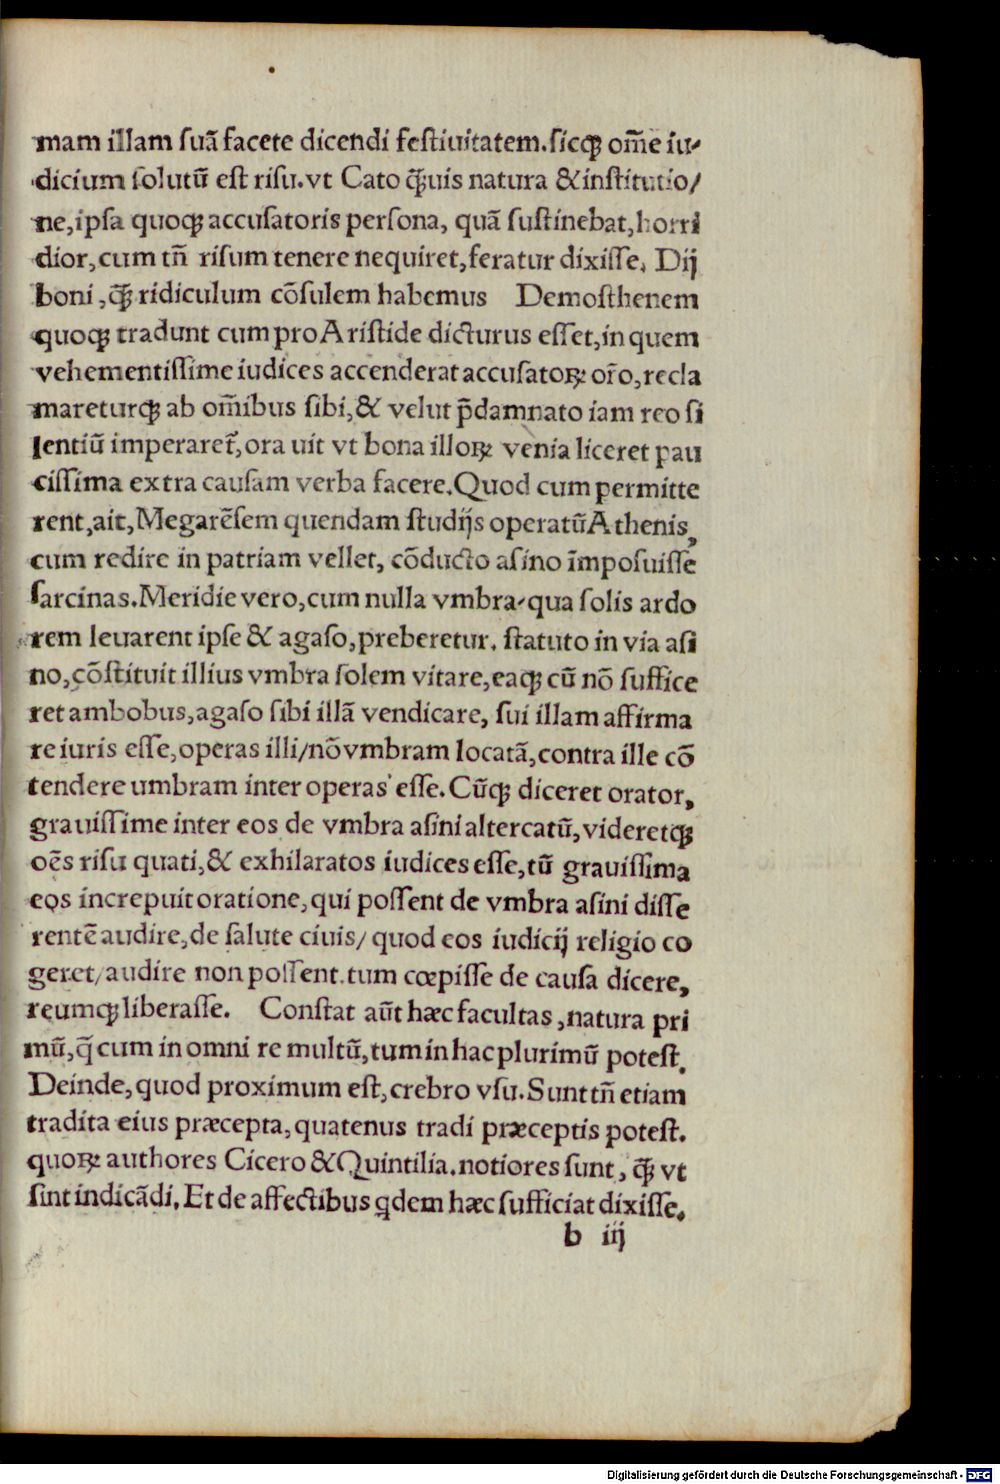 mam illam ſuã facete dicendi feſtiuitatem.ſicqꝫ om̃e iu-
dicium ſolutũ eſt riſu.vt Cato q̃uis natura &inſtitutio/
ne,ipſa quoqꝫ accuſatoris perſona, quã ſuſtinebat,horri
dior,cum tñ riſum tenere nequiret,feratur dixiſſe. Dij
boni ,q̃ꝫ ridiculum cõſulem habemus Demoſthenem
quoqꝫ tradunt cum pro Ariſtide dicturus eſſet,in quem
vehementiſſime iudices accenderat accuſatoꝝ or̃o,recla
mareturqꝫ ab om̃ibus ſibi,& velut p̃damnato iam reo ſi
lentiũ imperaret̃,ora uit vt bona illoꝝ venia liceret pau
ciſſima extra cauſam verba facere.Quod cum permitte
rent,ait,Megarẽſem quendam ſtudijs operatũ Athenis,
cum redire in patriam vellet, cõducto aſino ĩmpoſuiſſe
ſarcinas.Meridie vero,cum nulla vmbra-qua ſolis ardo
rem leuarent ipſe & agaſo,preberetur. ſtatuto in via aſi
no,cõſtituit illius vmbra ſolem vitare,eaqꝫ cũ nõ ſuffice
ret ambobus,agaſo ſibi illã vendicare, ſui illam affirma
re iuris eſſe,operas illi/nõ vmbram locatã,contra ille cõ
tendere umbram inter operas eſſe.Cũqꝫ diceret orator,
grauiſſime inter eos de vmbra aſini altercatũ,videretqꝫ
oẽs riſu quati,& exhilaratos iudices eſſe,tũ grauiſſima
eos increpuit oratione,qui poſſent de vmbra aſini diſſe
rentẽ audire,de ſalute ciuis/ quod eos iudicij religio co
geret/audire non poſſent.tum cœpiſſe de cauſa dicere,
reumqꝫ liberaſſe. Conſtat aũt hæc facultas ,natura pri
mũ,q̃ cum in omni re multũ,tum in hac plurimũ poteſt.
Deinde,quod proximum eſt,crebro vſu.Sunt tñ etiam
tradita eius præcepta,quatenus tradi præceptis poteſt.
quoꝝ authores Cicero &Quintilia.notiores ſunt , q̃ꝫ vt
ſint indicãdi.Et de affectibus qdem hæc ſufficiat dixiſſe.
b iij
Digitalisierung gefördert durch die Deutsche Forschungsgemeinschaft - DFG